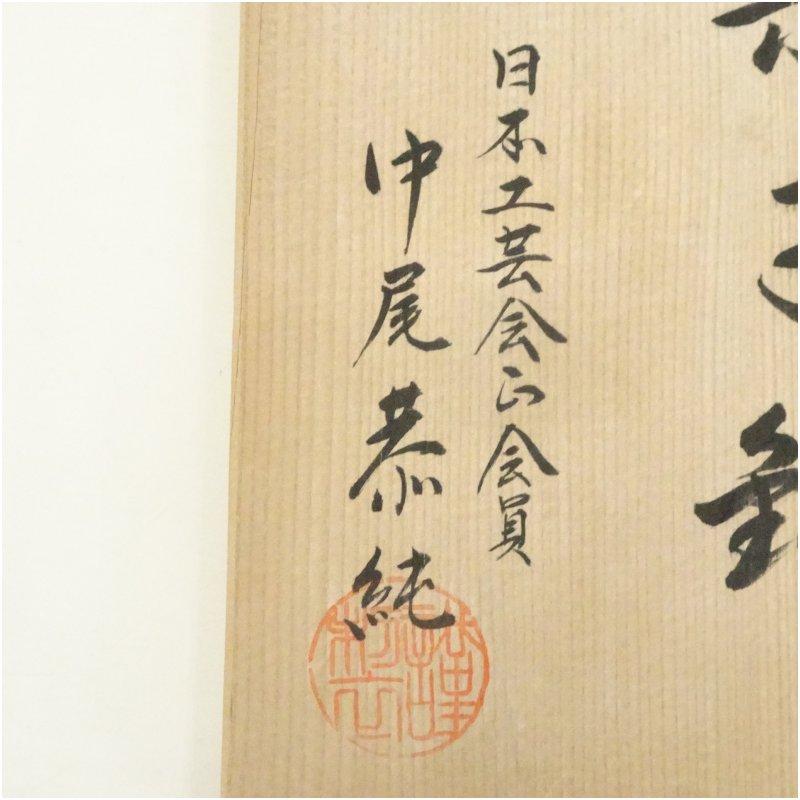 日本工芸会正会員
中尾恭純
謹製